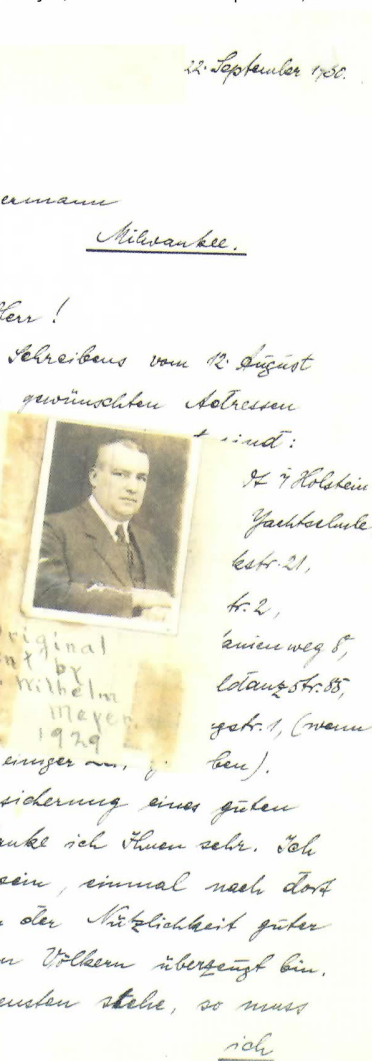 22. September 1930.
ermann
Milwaukee.
Herr !
Schreibens vom 12. August
gewünschten Adressen
sind :
Holstein
Yachtschule
kstr. 21,
tr. 2,
anienweg 8,
ldanzstr. 85,
gstr. 1, (wenn
einiger ben).
sicherung eines guten
anke ich Ihnen sehr. Ich
sein, einmal nach dort
der Nützlichkeit guter
n Völkern überzeugt bin.
ensten stehe, so muss
ich
riginal
nt by
Wilhelm
Meyer
1929